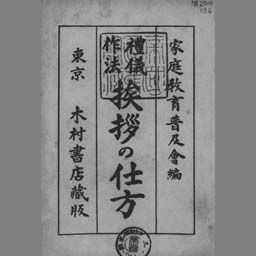 家庭教育普及會編
禮儀
作法
挨拶の仕方
東京 木村書店藏版